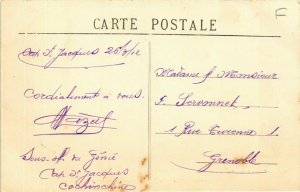 F
CARTE POSTALE
Cap St Jacques
Cordialement à vous.
Sous. off. du Génie
Cap. St Jacques
Cochinchine
Madame & Monsieur
1 Rue Turenne 1.
Grenoble